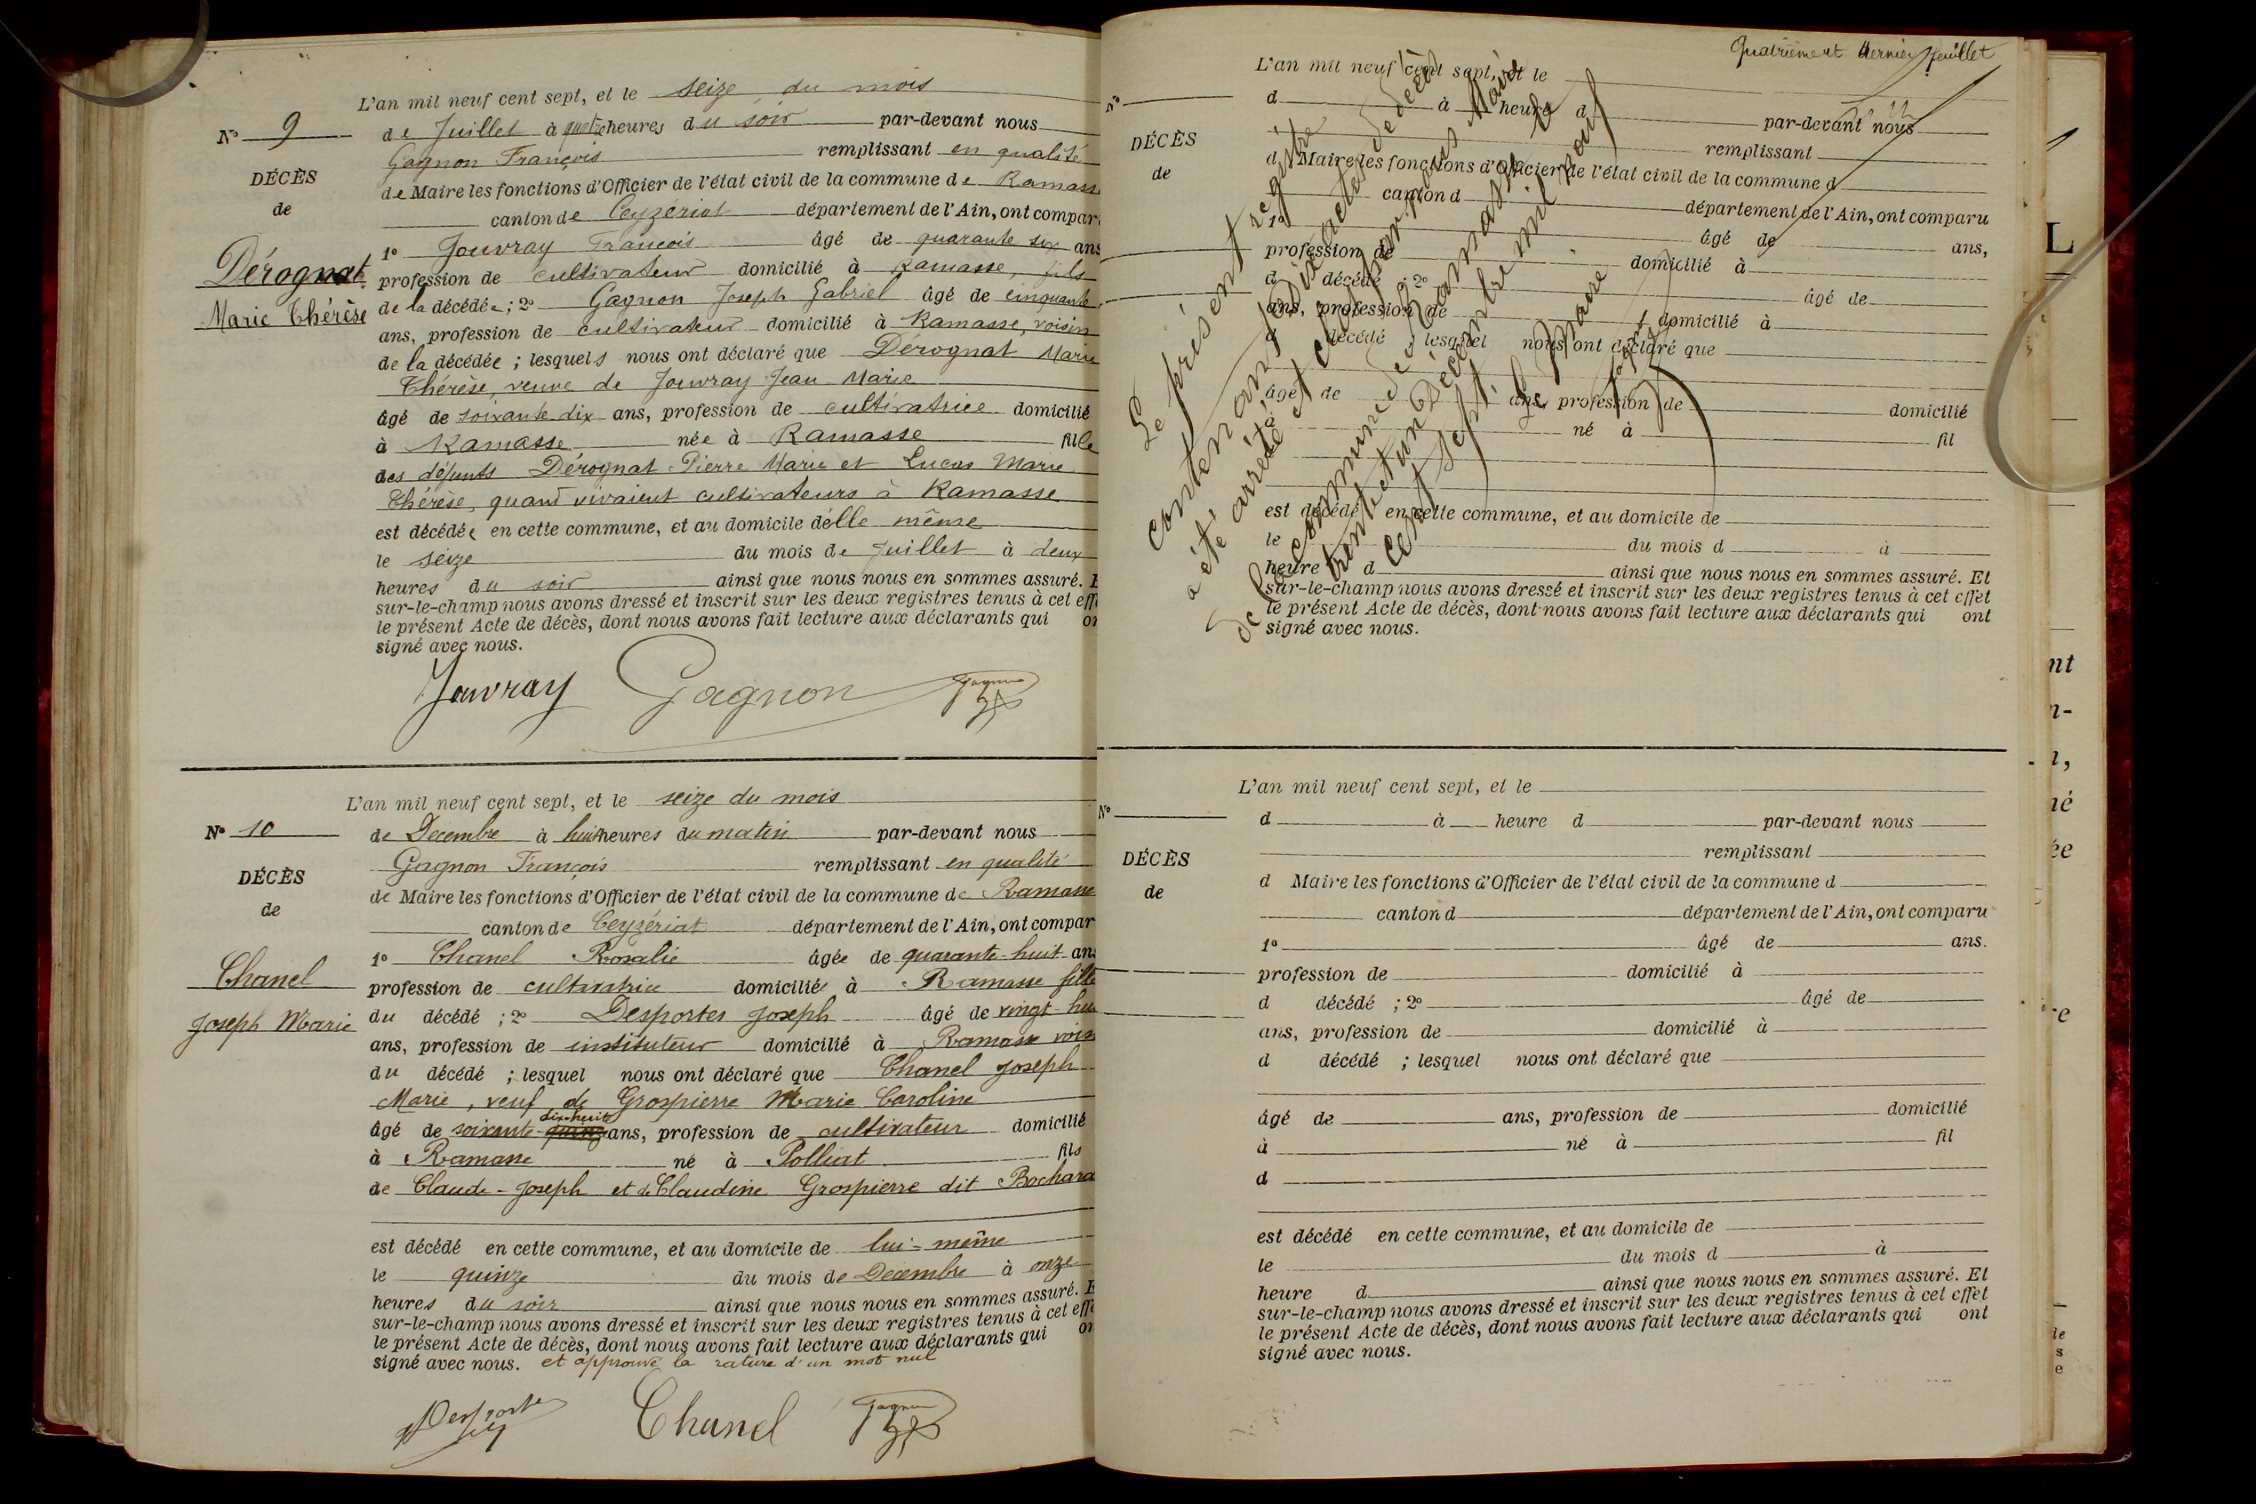 L'an mil neuf cent sept, et le seize du mois
N° 9
de Juillet à quatre heures du soir par-devant nous
Gagnon François remplissant en qualité
DÉCÈS
de Maire les fonctions d'Officier de l'état civil de la commune de Ramasse
de
canton de Ceyzériat département de l'Ain, ont compar
1° Jouvray François âgé de quarante six ans
Dérognat
profession de cultivateur domicilié à Ramasse, fils
Marie Thérèse
de la décédée ; 2° Gagnon Joseph Gabriel âgé de cinquante
ans, profession de cultivateur domicilié à Ramasse, voisin
de la décédée ; lesquels nous ont déclaré que Dérognat Marie
Thérèse, veuve de Jouvray Jean Marie
âgé de soixante dix ans, profession de cultivatrice domicilié
à Ramasse née à Ramasse fille
des défunts Dérognat Pierre Marie et Lucas Marie
Thérèse, quand vivaient cultivateurs à Ramasse
est décédée en cette commune, et au domicile d'elle même
le seize du mois de Juillet à deux
heures du soir ainsi que nous nous en sommes assuré. E
sur-le-champ nous avons dressé et inscrit sur les deux registres tenus à cet effe
le présent Acte de décès, dont nous avons fait lecture aux déclarants qui on
signé avec nous.
Jouvray Gagnon Gagnon
L'an mil neuf cent sept, et le seize du mois
N° 10
de Décembre à huit heures du matin par-devant nous
Gagnon François remplissant en qualité
DÉCÈS
de Maire les fonctions d'Officier de l'état civil de la commune de Ramasse
de
canton de Ceyzériat département de l'Ain, ont compar
1° Chanel Rosalie âgée de quarante-huit ans
Chanel
profession de cultivatrice domiciliée à Ramasse fille
Joseph Marie
du décédé ; 2° Desportes Joseph âgé de vingt-hui
ans, profession de instituteur domicilié à Ramasse vois
du décédé ; lesquel nous ont déclaré que Chanel Joseph
Marie, veuf de Grospierre Marie Caroline
dix-huit
âgé de soixante quinze ans, profession de cultivateur domicilié
à Ramasse né à Polliat fils
de Claude-Joseph et de Claudine Grospierre dit Bochara
est décédé en cette commune, et au domicile de lui-même
le quinze du mois de Décembre à onze
heures du soir ainsi que nous nous en sommes assuré. E
sur-le-champ nous avons dressé et inscrit sur les deux registres tenus à cet effe
le présent Acte de décès, dont nous avons fait lecture aux déclarants qui on
signé avec nous. et approuvé la rature d'un mot nul
Desportes Chanel Gagnon
Quatrième et dernier feuillet
L'an mil neuf cent sept, et le
N°
d à heure d par-devant nous
remplissant
DÉCÈS
d Maire les fonctions d'Officier de l'état civil de la commune d
de
canton d département de l'Ain, ont comparu
1° âgé de ans,
profession de domicilié à
d décédé ; 2° âgé de
ans, profession de domicilié à
d décédé lesquel nous ont déclaré que
âgé de ans, profession de domicilié
à né à fil
d
est décédé en cette commune, et au domicile de
le du mois d à
heure d ainsi que nous nous en sommes assuré. Et
sur-le-champ nous avons dressé et inscrit sur les deux registres tenus à cet effet
le présent Acte de décès, dont nous avons fait lecture aux déclarants qui ont
signé avec nous.
Le présent registre
contenant dix actes de décès
a été arrêté et clos par nous Maire
de la commune de Ramasse le
trente et un Décembre mil neuf
cent sept. Le Maire
L'an mil neuf cent sept, et le
N°
d à heure d par-devant nous
remplissant
DÉCÈS
d Maire les fonctions d'Officier de l'état civil de la commune d
de
canton d département de l'Ain, ont comparu
1° âgé de ans.
profession de domicilié à
d décédé ; 2° âgé de
ans, profession de domicilié à
d décédé ; lesquel nous ont déclaré que
âgé de ans, profession de domicilié
à né à fil
d
est décédé en cette commune, et au domicile de
le du mois d à
heure d ainsi que nous nous en sommes assuré. Et
sur-le-champ nous avons dressé et inscrit sur les deux registres tenus à cet effet
le présent Acte de décès, dont nous avons fait lecture aux déclarants qui ont
signé avec nous.